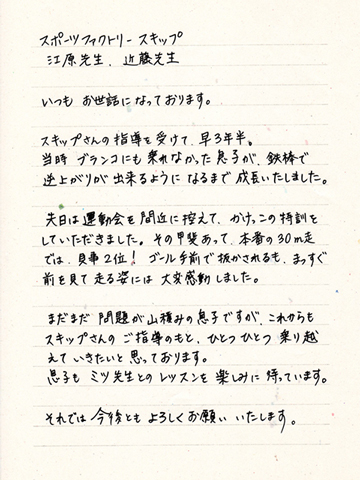 スポーツファクトリー スキップ
江原先生、近藤先生
いつも お世話になっております。
スキップさんの指導を受けて、早3年半。
当時 ブランコにも乗れなかった息子が、鉄棒で
逆上がりが出来るようになるまで成長いたしました。
先日は運動会を間近に控えて、かけっこの特訓を
していただきました。その甲斐あって、本番の30m走
では、見事2位！ ゴール手前で抜かされるも、まっすぐ
前を見て走る姿には大変感動しました。
まだまだ問題が山積みの息子ですが、これからも
スキップさんのご指導のもと、ひとつひとつ乗り越
えていきたいと思っております。
息子もミツ先生とのレッスンを楽しみに待っています。
それでは今後ともよろしくお願いいたします。